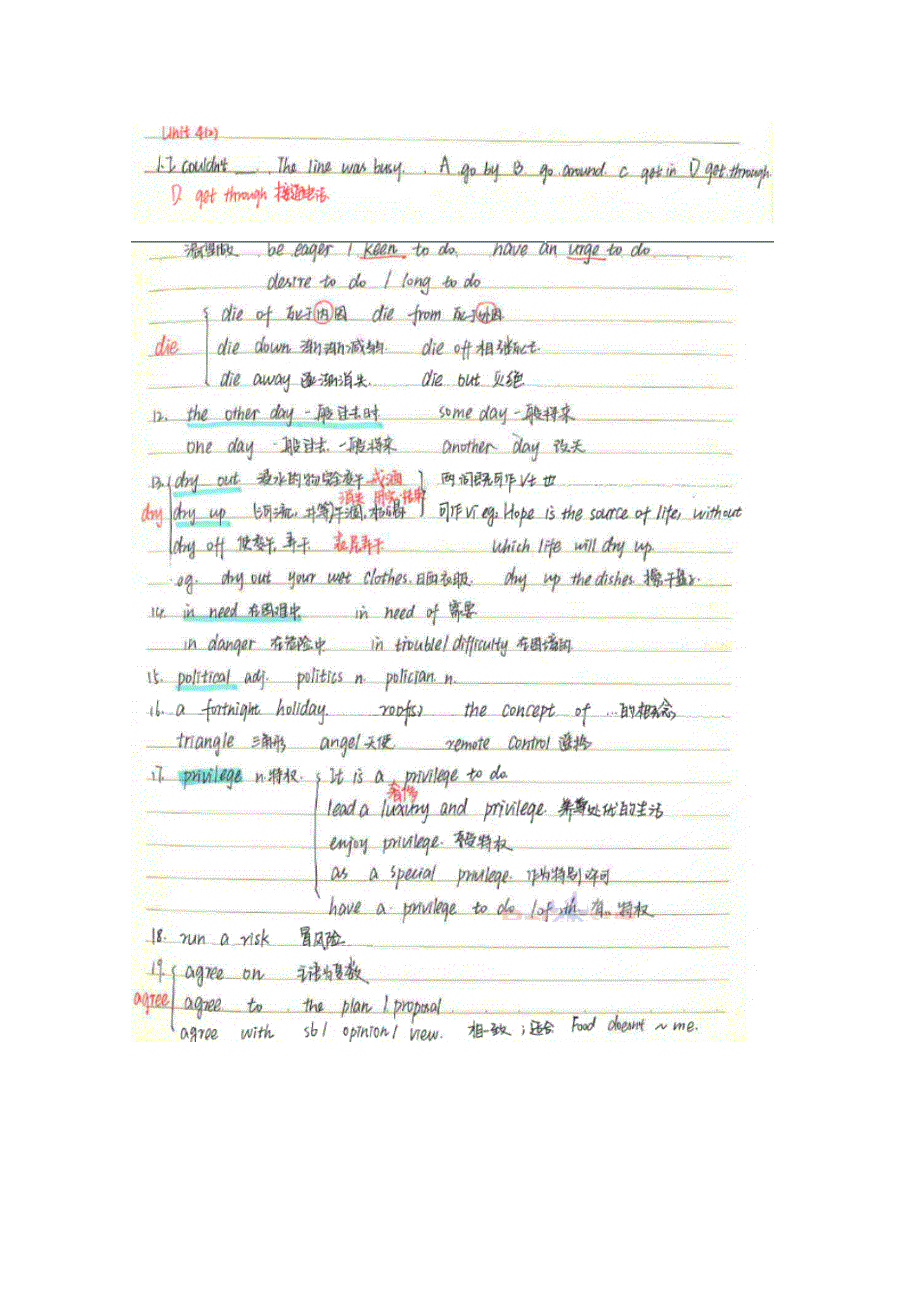 Unit 4(2)
1. I couldn't ___. The line was busy. A. go by B. go around. C. get in D get through.
D. get through 接通电话.
渴望做 be eager / keen to do. have an urge to do
desire to do / long to do
die of 死于内因 die from 死于外因
die die down 渐渐减弱 die off 相继死亡
die away 逐渐消失. die out 灭绝
12. the other day 一般过去时 some day 一般将来
one day 一般过去. 一般将来 another day 改天
13. dry out 浸水的物 变干 戒酒 两词既可作vt 也
消失 用完
dry dry up (河流, 井等)干涸, 可作vi eg: Hope is the source of life, without
dry off 使变干, 弄干 弄干 which life will dry up.
eg. dry out your wet clothes. 晒衣服. dry up the dishes 擦干盘子.
14. in need 在困难中 in need of 需要
in danger 在危险中 in trouble / difficulty 在困境中
15. political adj. politics n. polician. n.
16. a fortnight holiday. roof(s) the concept of …的概念
triangle 三角形 angel 天使 remote control 遥控
17. privilege n. 特权. It is a privilege to do.
奢侈
lead a luxury and privilege. 养尊处优的生活
enjoy privilege. 享受特权
as a special privilege. 作为特别许可
have a privilege to do / of sth. 有…特权
18. run a risk 冒风险
19. agree on 主语为复数
agree agree to the plan / proposal
agree with sb / opinion / view. 相一致; 适合 Food doesn't ~ me.